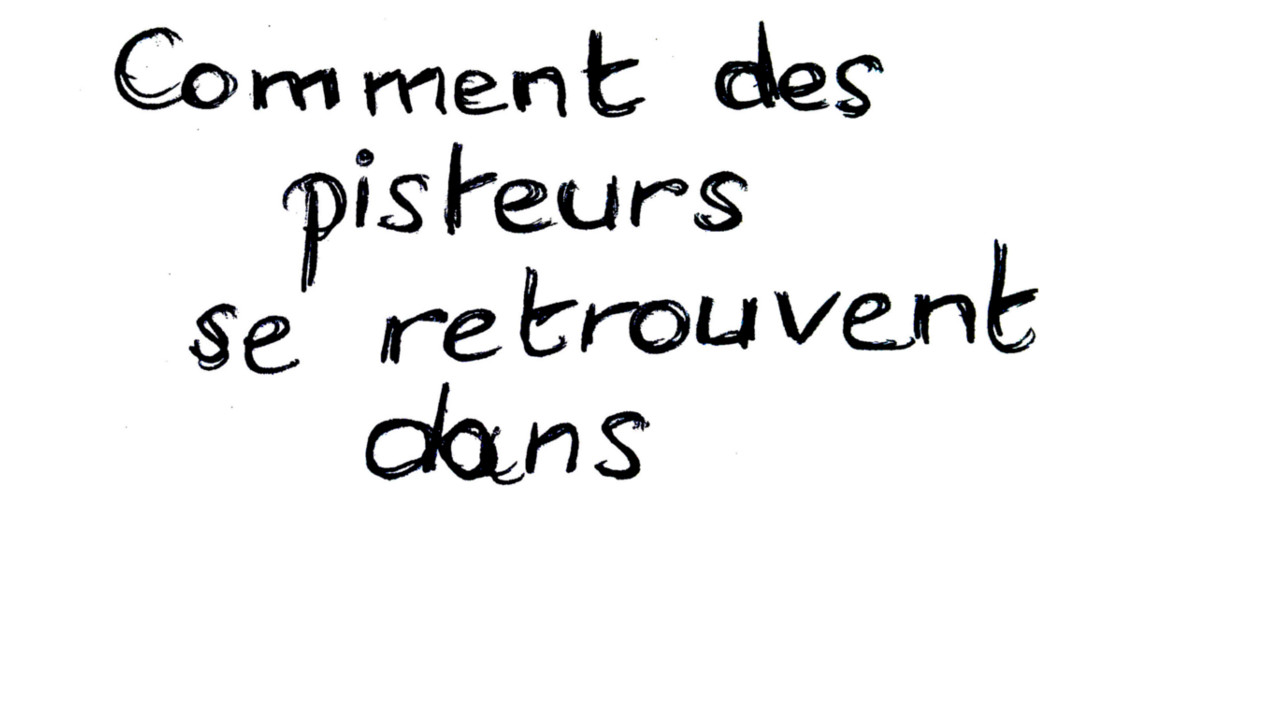 Comment des
pisteurs
se retrouvent
dans